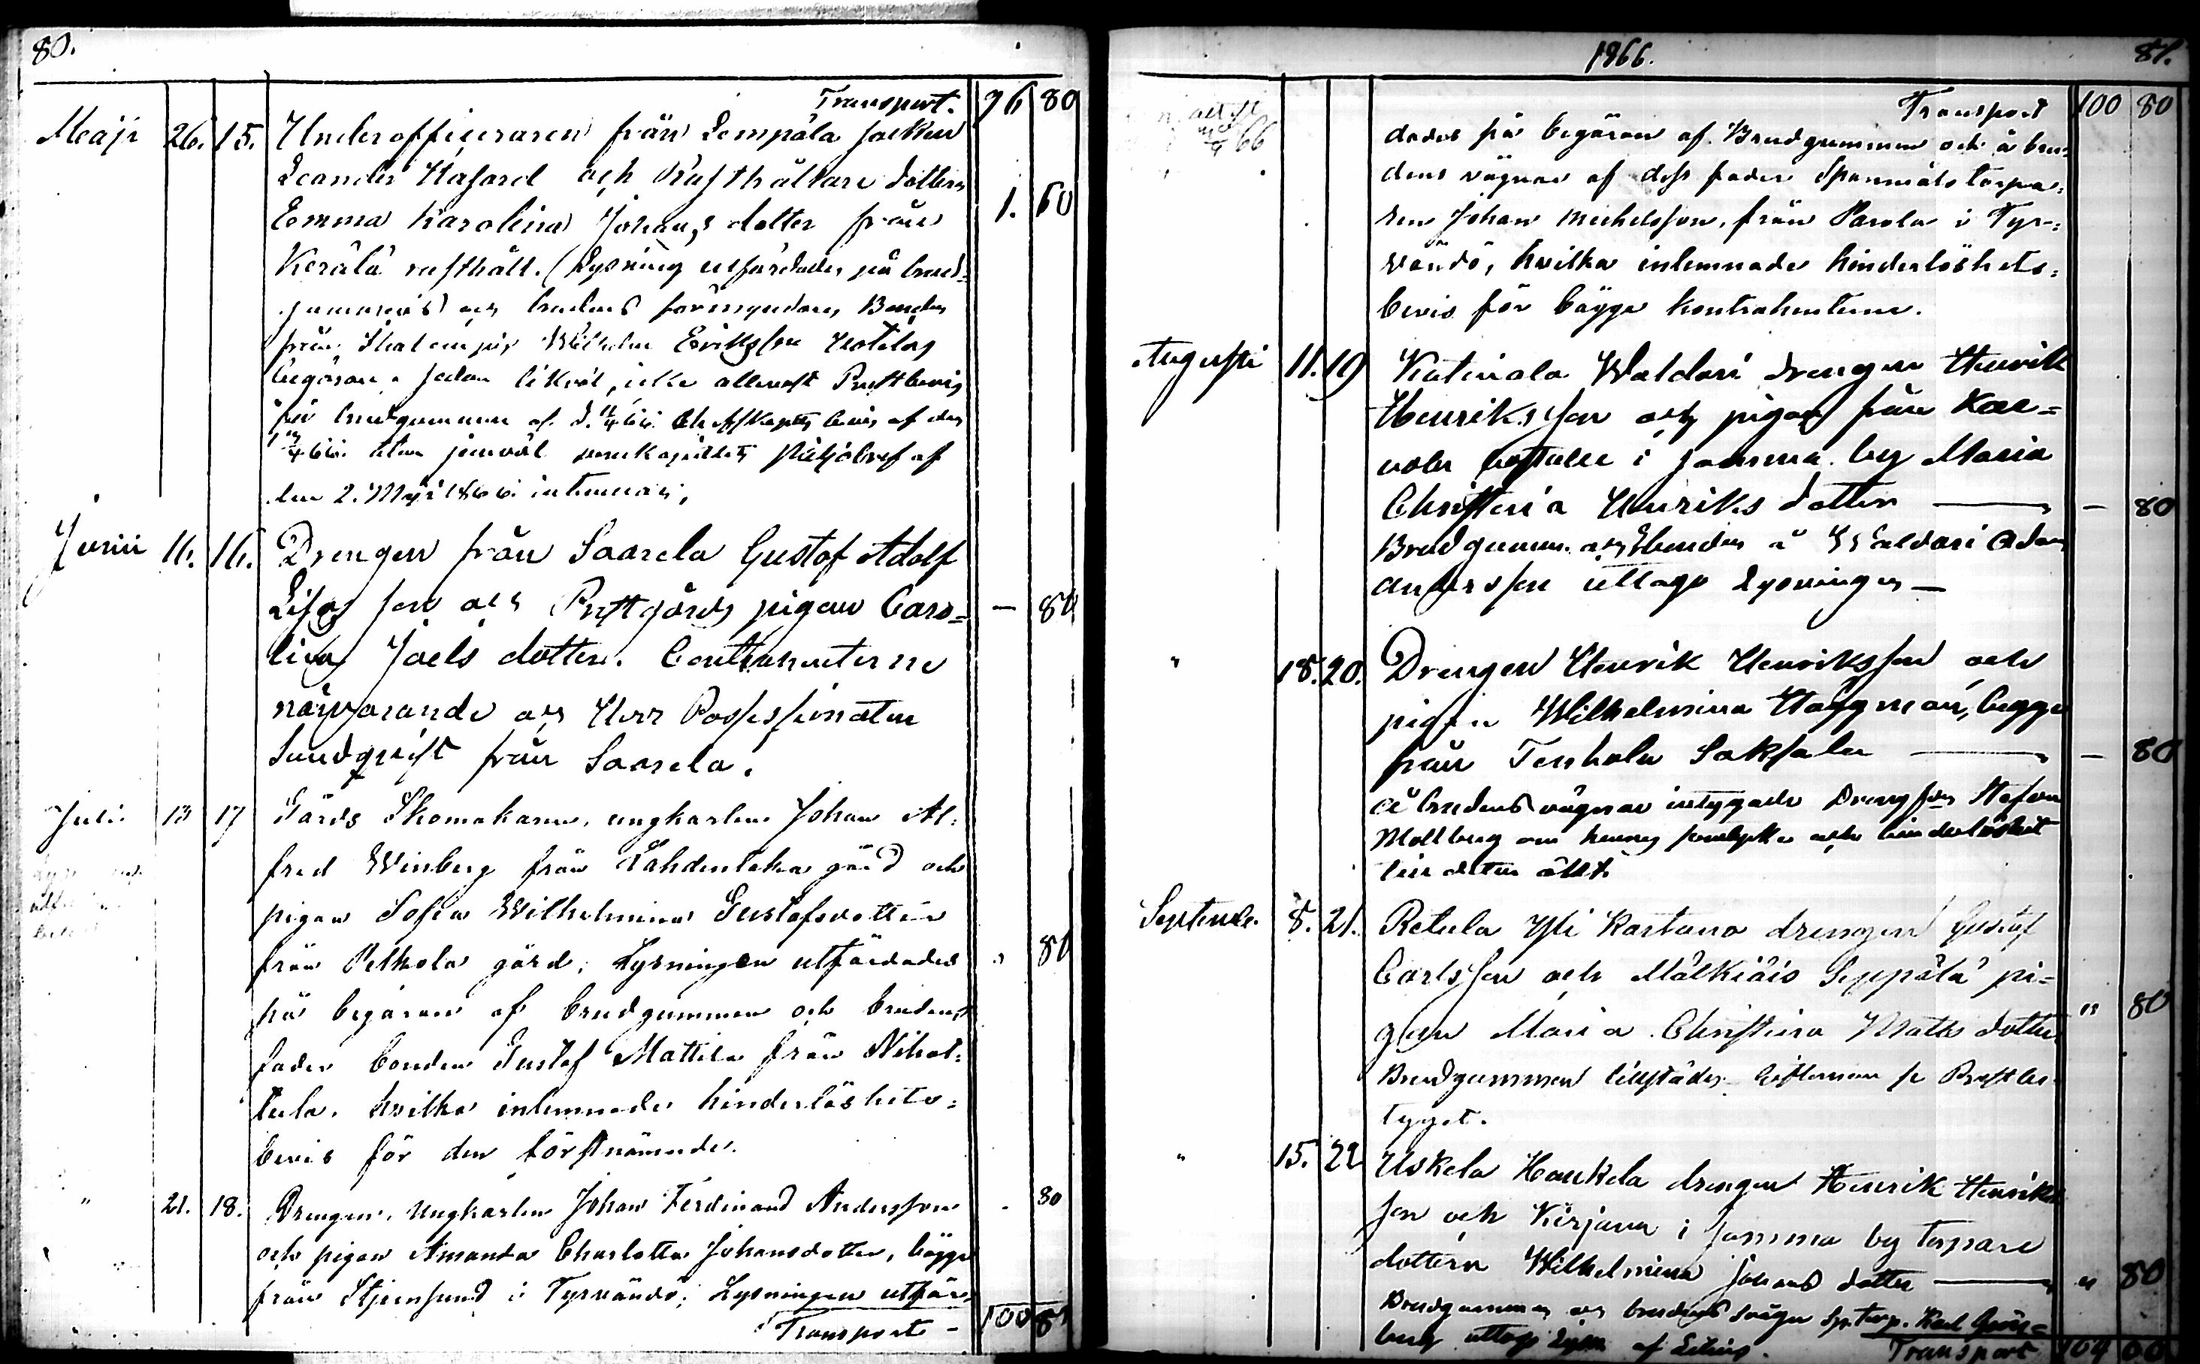 80.
Transport. 96 80
Maji 26. 15. Underofficeraren från Lempäla socken
Leander Hasard och Rusthållare dottren
Emma Karolina Johans dotter från 1. 60
Keräla rusthåll. (Lysning utfärdades på brud-
gummens och brudens förmyndares Bonden
från Wilhelm Eriksson
begäran, sedan likväl, icke allenast Prestbevis
för brudgummen af d. 66. bevis af den
66. utan jemväl af
den 2. Maji 1866
Junii 16. 16. Drengen från Saarela Gustof Adolf
son och Prestgårds pigan Caro= — 80
lina Joels dotter. Contrahenterne
närvarande och Herr Possessionaten
Sundqvist från Saarela.
Juli 13 17 Gårds Skomakaren, ungkarlen Johan Al-
fred Winberg från Lahdentaka gård och
pigan Sofia Wilhelmina Gustafsdotter
från Pelkola gård; Lysningen utfärdades " 80
på begäran af brudgummen och brudens
fader bonden Gustaf Mattila från Nihat-
tula. hvilka inlemnade hinderlöshets=
bevis för den förstnämnde.
" 21. 18. Drengen, ungkarlen Johan Ferdinand Andersson - 80
och pigan Amanda Charlotta Johansdotter, bägge
från Stjernsund i Tyrvändö; Lysningen utfär-
Transport - 100 80
1866. 81.
Transport 100 80
dades på begäran af Brudgummen och å bru-
dens vägnar af dess fader Spanmåls torpa-
ren Johan Michelsson, från Parola i Tyr-
vändö, hvilka inlemnade hinderlöshets-
bevis för bägge kontrahenterne.
Augusti 11. 19 Katinala Waldari drengen Henrik
Henriksson och pigan från Kar=
nola i Jamma by Maria
Christina Henriks dotter — - 80
Brudgummen och Bonden å Waldari Adam
Andersson uttago Lysningen —
" 18. 20. Drengen Henrik Henriksson och
pigan Wilhelmina Häggman, begge
från Tenhola Saksala — - 80
å brudens vägnar intygade Stefan
Mollberg om hennes samtycke och hinderlöshet
till detta äkt.
Septembr. 8. 21. Retula Yli Kartano drengen Gustaf
Carlsson och Mälkiäis Seppälä pi-
gan Maria Christina Mats dotter " 80
Brudgummen tillstädes. Giftoman se Prestbe-
tyget.
" 15. 22 Uskela Haukela drengen Henrik Henriks
son och Kirjava i Jamma by torpare
dottern Wilhelmina Johans dotter — " 80
Brudgummen och brudens svåger Sp. torp. Karl Grön=
berg uttogo Lysn. af
Transport 104 00